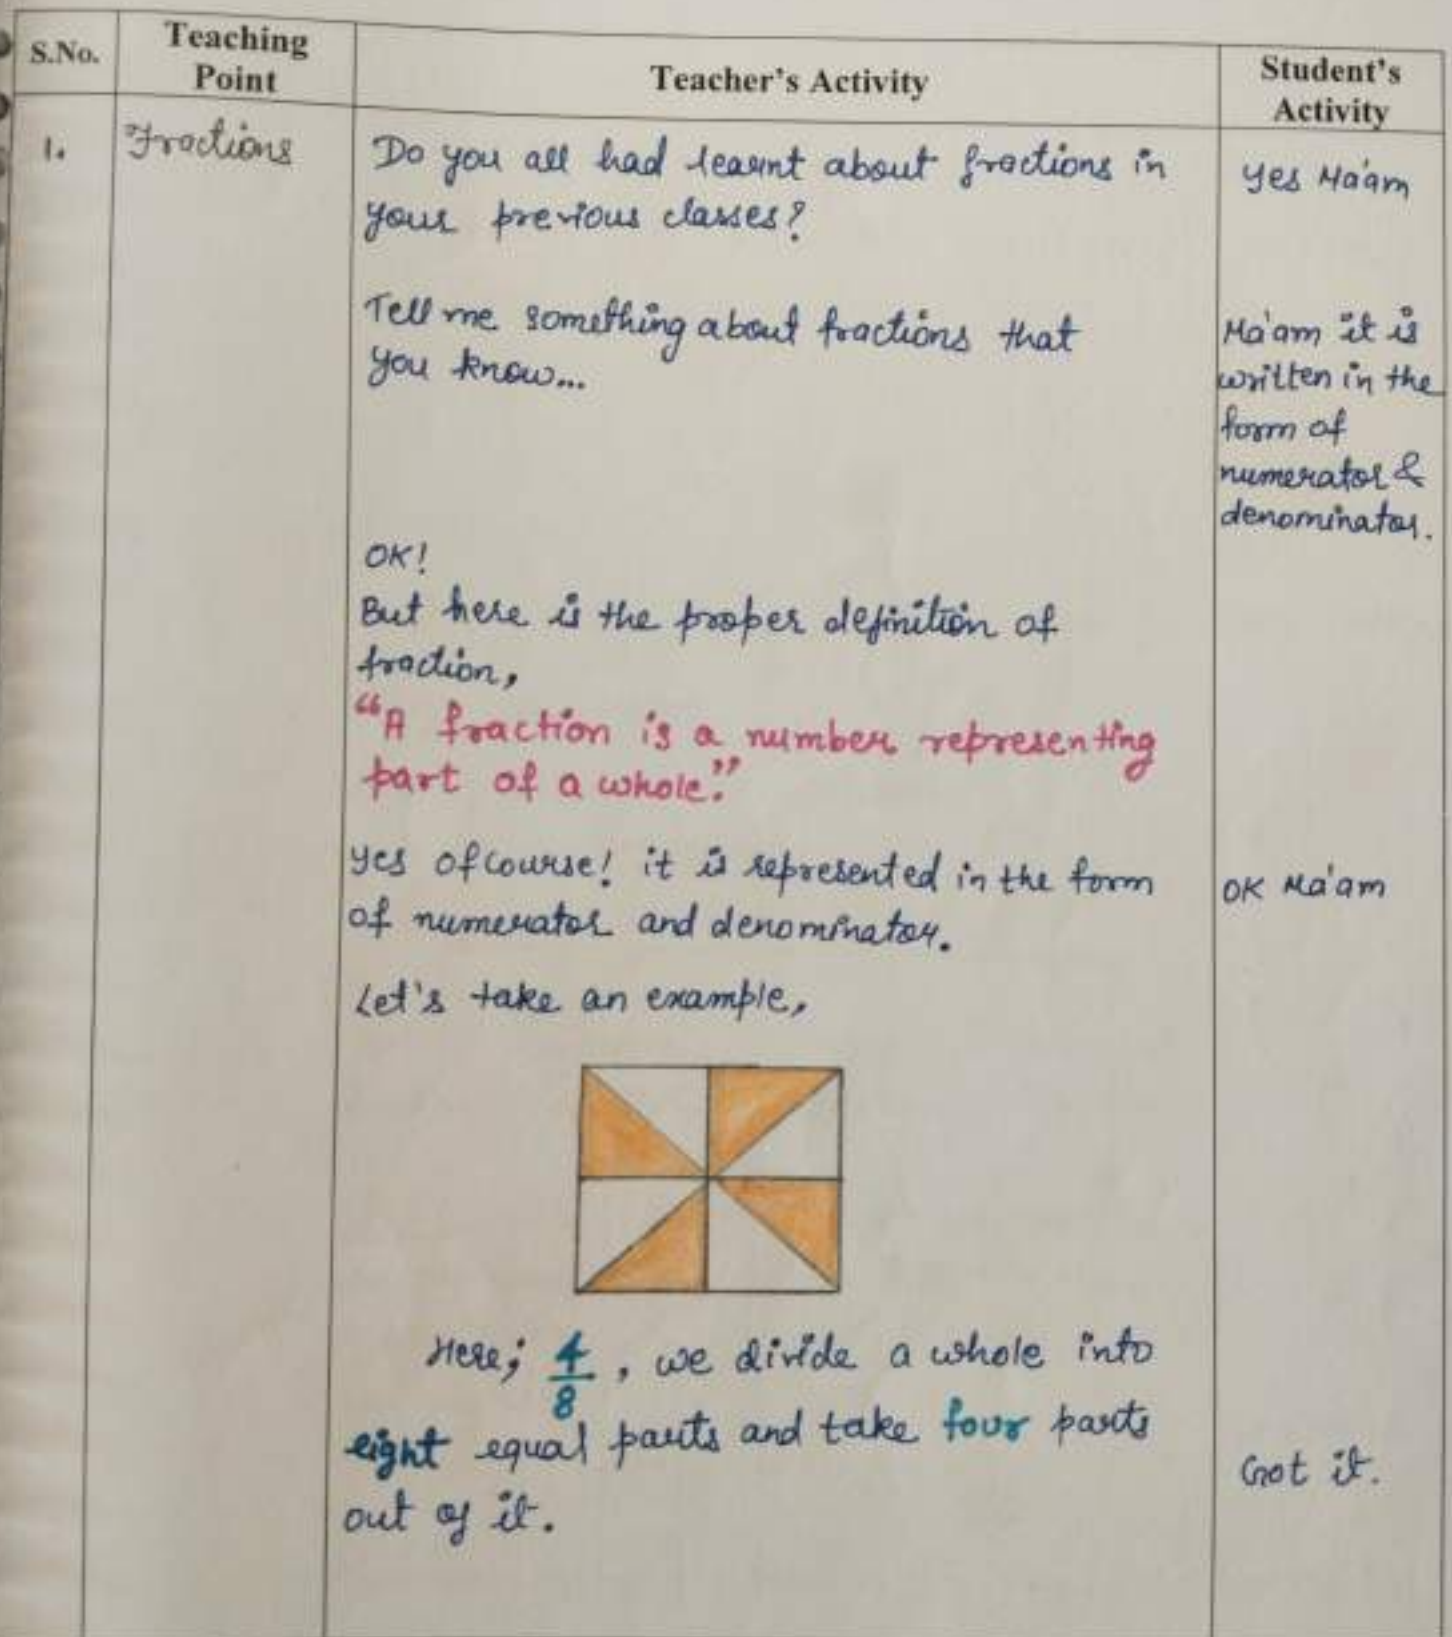 S.No.
Teaching
Point
Teacher's Activity
Student's
Activity
1.
Fractions
Do you all had learnt about fractions in
your previous classes?
Yes Ma'am
Tell me something about fractions that
you know...
Ma'am it is
written in the
form of
numerator &
denominator.
OK!
But here is the proper definition of
fraction,
"A fraction is a number representing
part of a whole."
Yes ofcourse! it is represented in the form
of numerator and denominator.
OK Ma'am
Let's take an example,
Here; 4/8, we divide a whole into
eight equal parts and take four parts
out of it.
Got it.